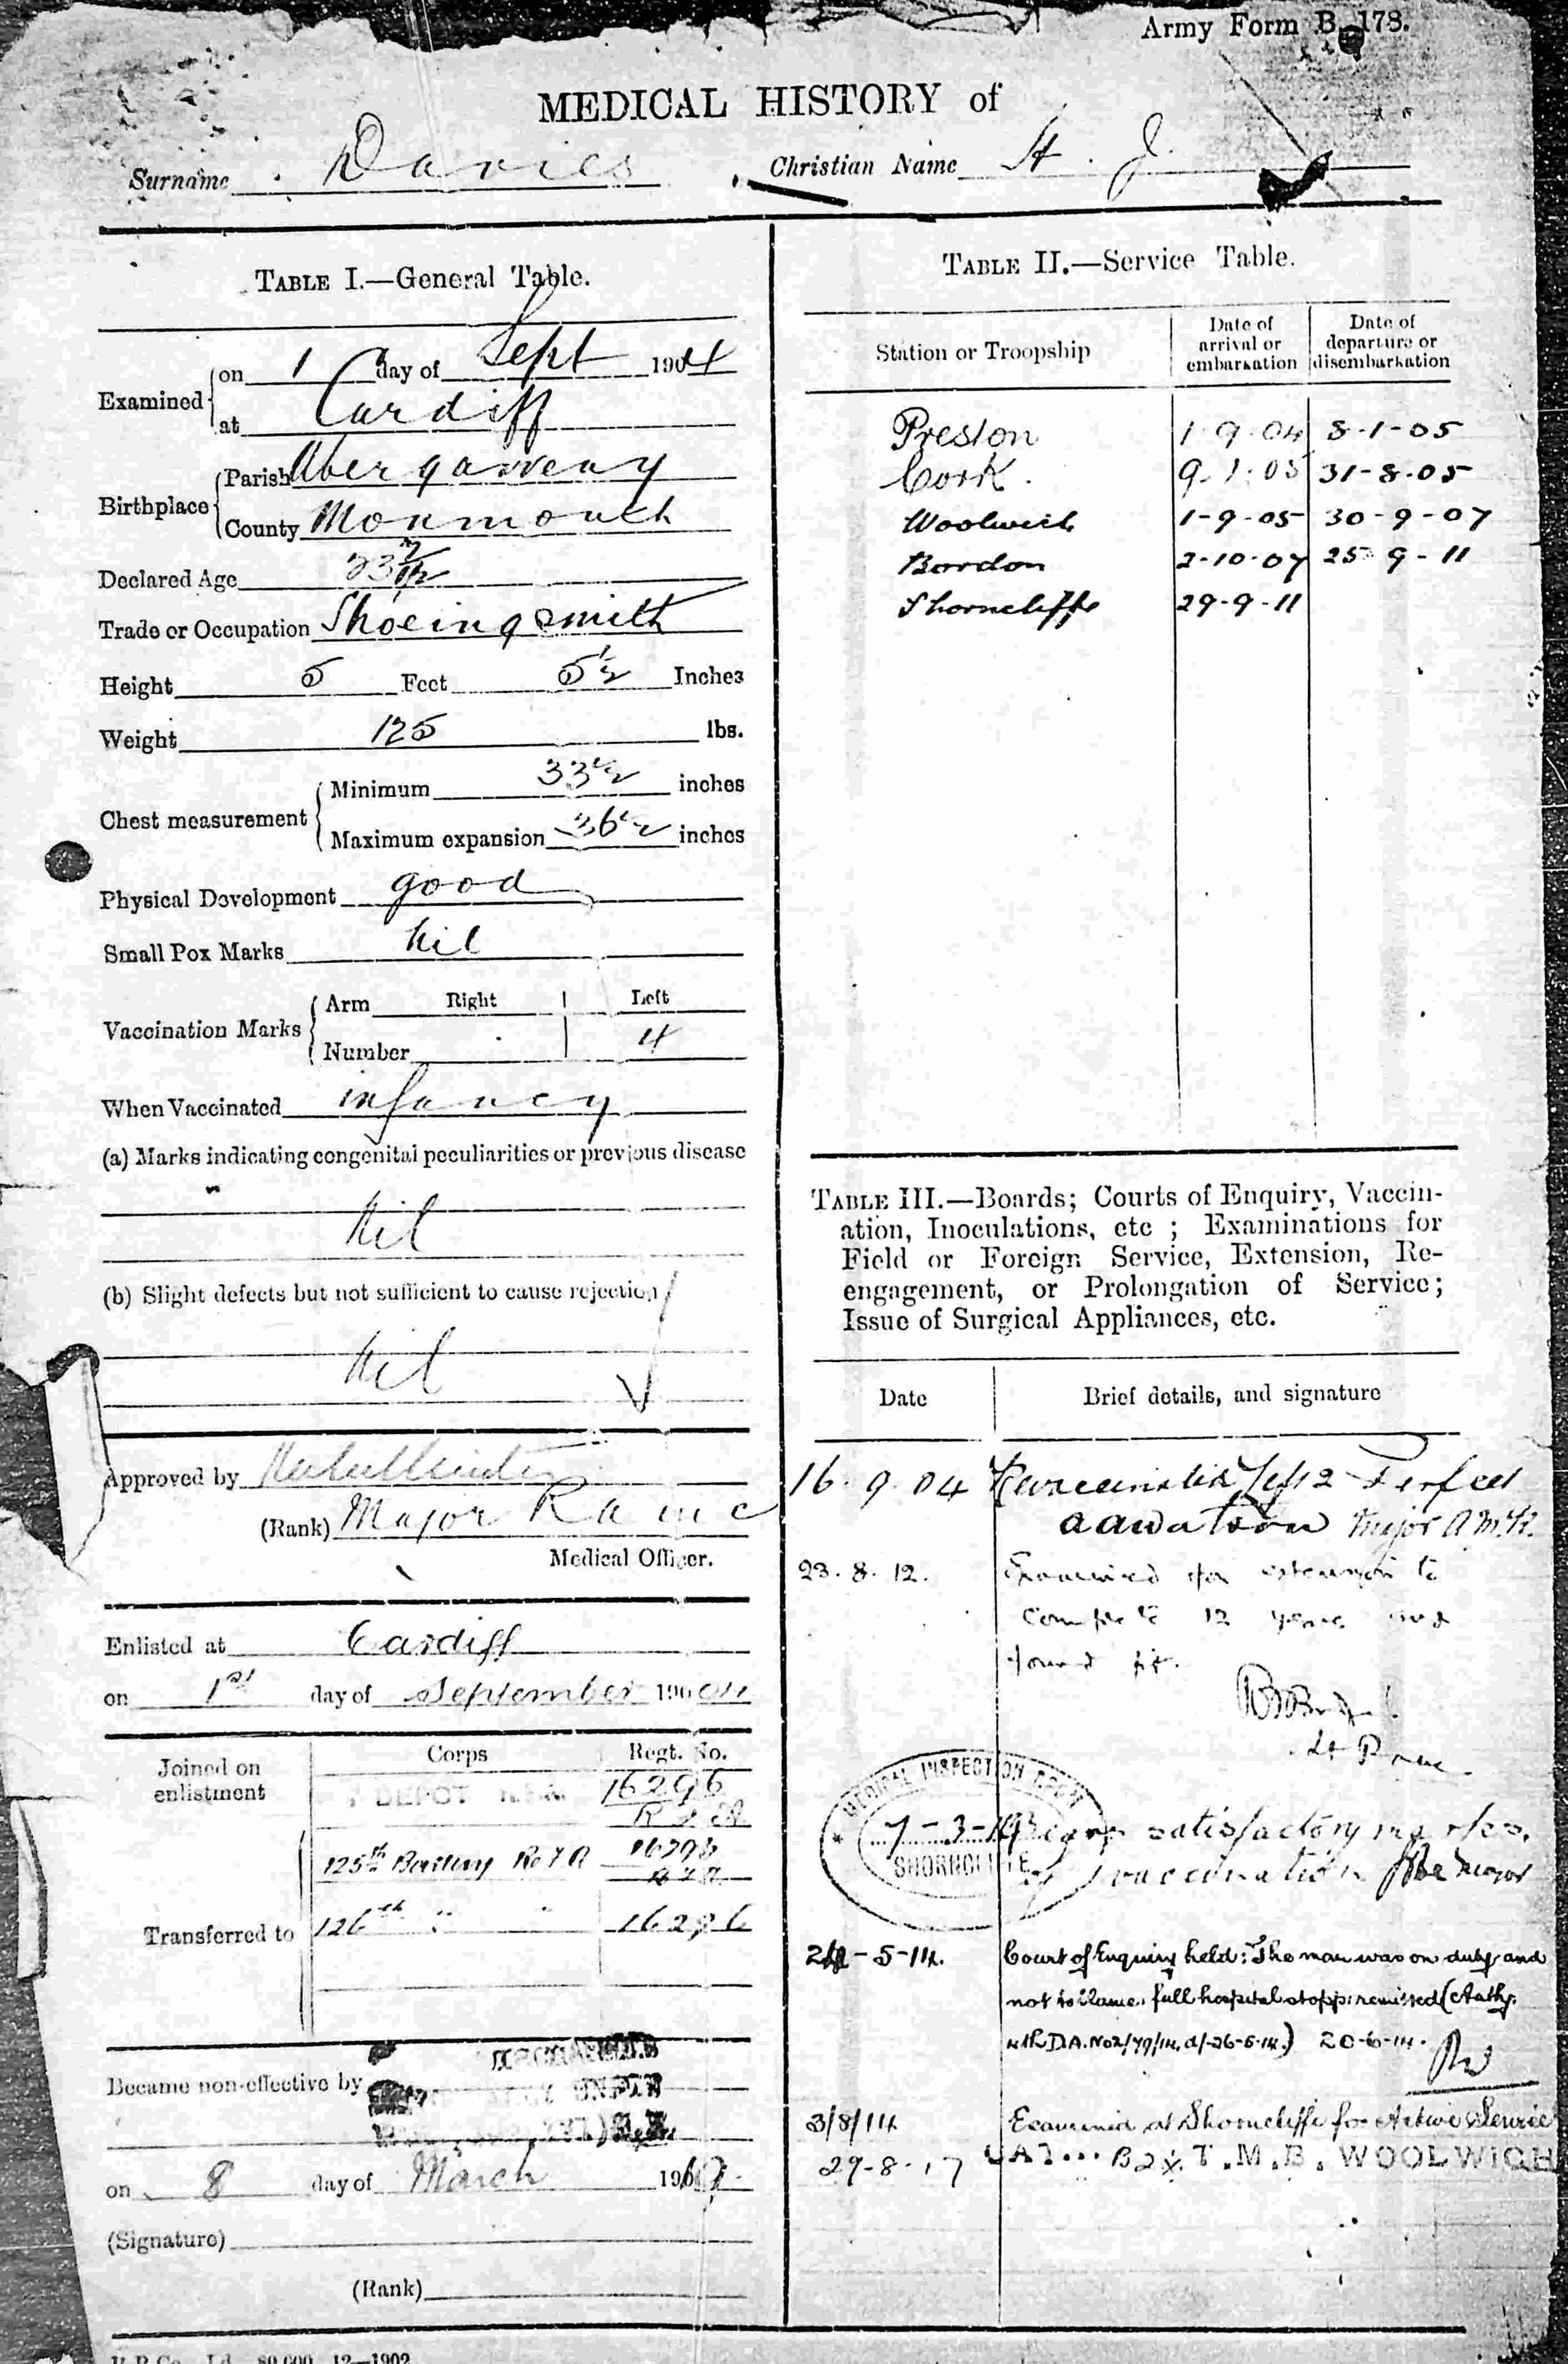 Army Form B. 178.
MEDICAL HISTORY of
Surname Davies Christian Name H. J.
TABLE I.—General Table.
Examined on 1 day of Sept 1904
at Cardiff
Birthplace Parish Abergavenny
County Monmouth
Declared Age 23 7/12
Trade or Occupation Shoeing smith
Height 5 Feet 5 1/2 Inches
Weight 125 lbs.
Chest measurement Minimum 33 1/2 inches
Maximum expansion 36 1/2 inches
Physical Development good
Small Pox Marks Nil
Vaccination Marks Arm Right Left
Number 4
When Vaccinated infancy
(a) Marks indicating congenital peculiarities or previous disease
Nil
(b) Slight defects but not sufficient to cause rejection
Nil
Approved by
(Rank) Major Ramc
Medical Officer.
Enlisted at Cardiff
on 1st day of September 1904
Joined on enlistment Corps Regt. No.
DEPOT 16296
Transferred to 125th Battery RFA 16296
126th " " 16296
Became non-effective by
on 8 day of March 19
(Signature)
(Rank)
80,000 12—1902
TABLE II.—Service Table.
Station or Troopship Date of arrival or embarkation Date of departure or disembarkation
Preston 1-9-04 8-1-05
Cork. 9-1-05 31-8-05
Woolwich 1-9-05 30-9-07
Bordon 2-10-07 25-9-11
Shorncliffe 29-9-11
TABLE III.—Boards; Courts of Enquiry, Vaccin-
ation, Inoculations, etc ; Examinations for
Field or Foreign Service, Extension, Re-
engagement, or Prolongation of Service;
Issue of Surgical Appliances, etc.
Date Brief details, and signature
16.9.04 Revaccinated left 2 Perfect
Major
23.8.12. Examined for extension to
complete 12 years and
found fit.
MEDICAL INSPECTION ROOM
7-3-13
SHORNCLIFFE
satisfactory marks
of vaccination Major
-5-14. Court of Enquiry held: The man was on duty and
not to blame. full hospital stopp: remitted (Authy.
20-6-14.
3/8/14 Examined at Shorncliffe for Active Service
29-8-17 CAT... B2 T.M.B. WOOLWICH